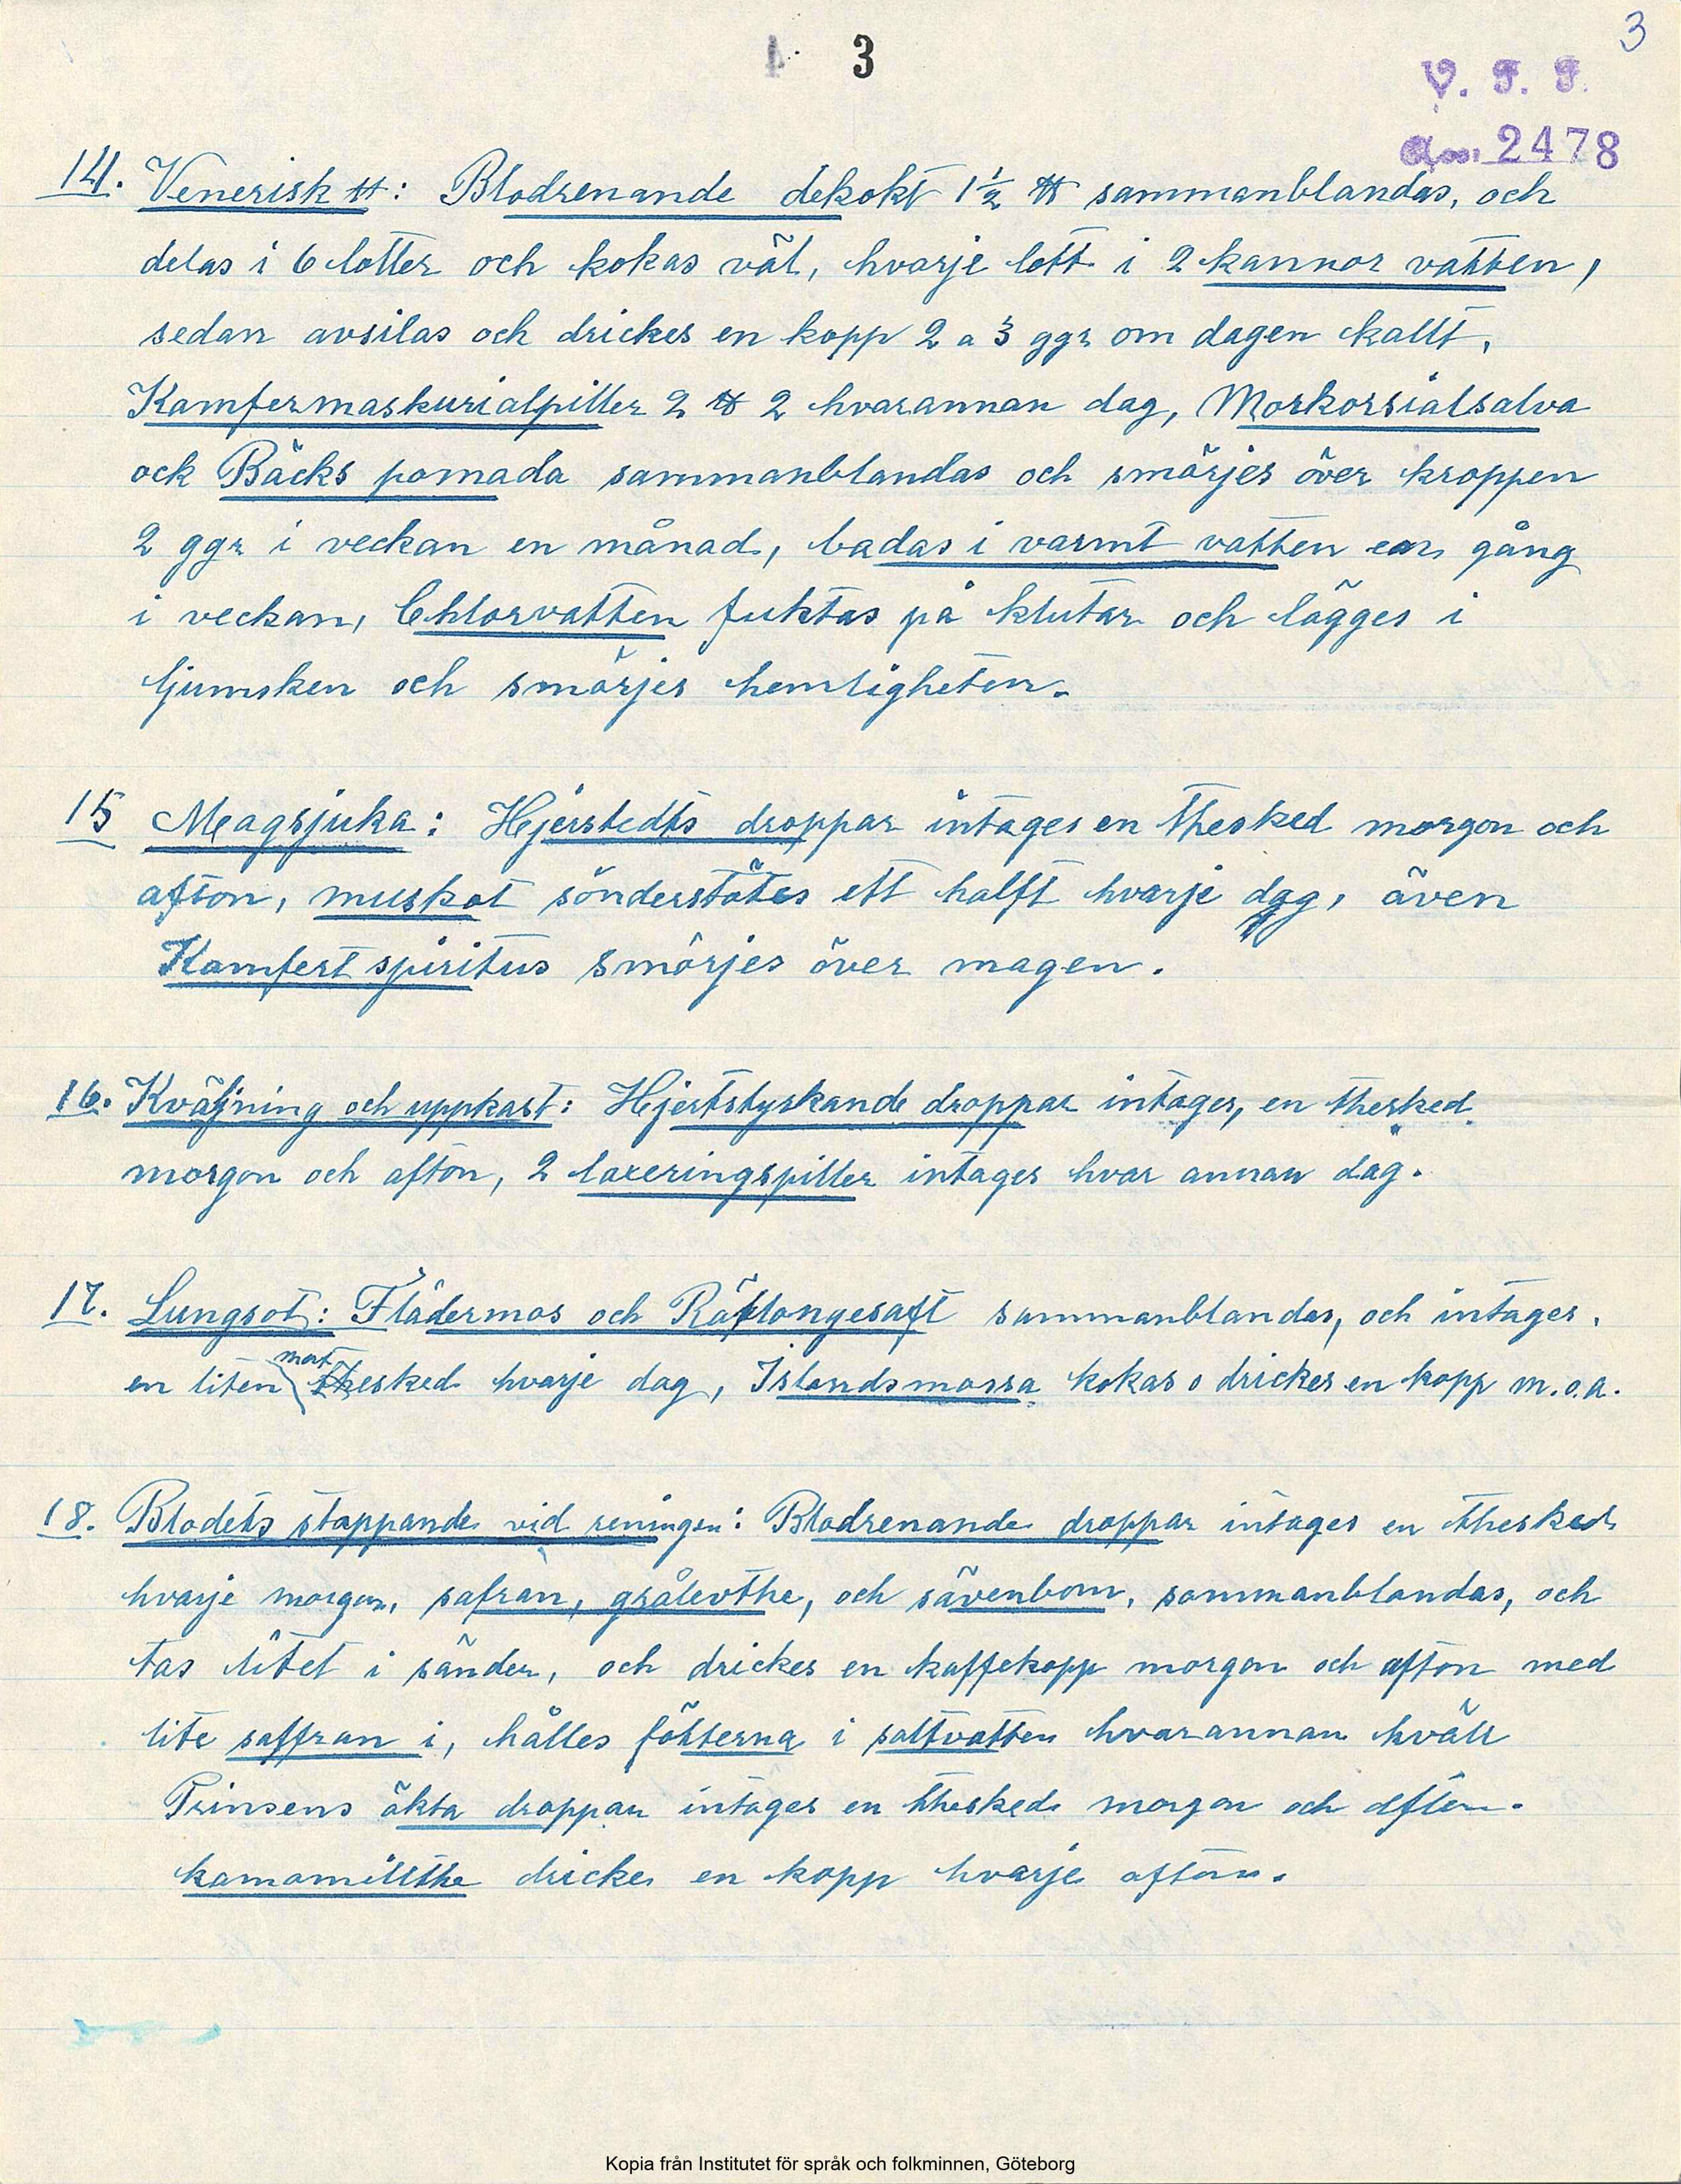 3
3
V. F. F.
Acc. 2478
14. Venerisk ₶: Blodrenande dekokt 1½ ₶ sammanblandas, och
delas i 6 lotter och kokas väl, hvarje lott i 2 kannor vatten,
sedan avsilas och drickes en kopp 2 a 3 ggr om dagen kallt,
Kamfermaskurialpiller 2 ₶ 2 hvarannan dag, Morkorsialsalva
ock Bäcks pomada sammanblandas och smörjes över kroppen
2 ggr i veckan en månad, badas i varmt vatten en gång
i veckan, Chlorvatten fuktas på klutar och lägges i
ljumsken och smörjes hemligheten.
15 Magsjuka: Hjerstedts droppar intages en thesked morgon och
afton, muskot sönderstötes ett halft hvarje dag, även
Kamfert spiritus smörjes över magen.
16. Kväljning och uppkast: Hjertstyrkande droppar intages, en thesked
morgon och afton, 2 laxeringspiller intages hvar annan dag.
17. Lungsot: Flädermos och Räflongesaft sammanblandas, och intages,
mat
en liten thesked hvarje dag, Islandsmossa kokas o drickes en kopp m.o.a.
18. Blodets stoppande vid reningen: Blodrenande droppar intages en thesked
hvarje morgon, safran, grålevthe, och sävenbom, sammanblandas, och
tas litet i sänder, och drickes en kaffekopp morgon och afton med
lite saffran i, hålles fötterna i saltvatten hvarannan kväll
Prinsens äkta droppar intages en thesked morgon och afton.
kamomillthe drickes en kopp hvarje afton.
Kopia från Institutet för språk och folkminnen, Göteborg